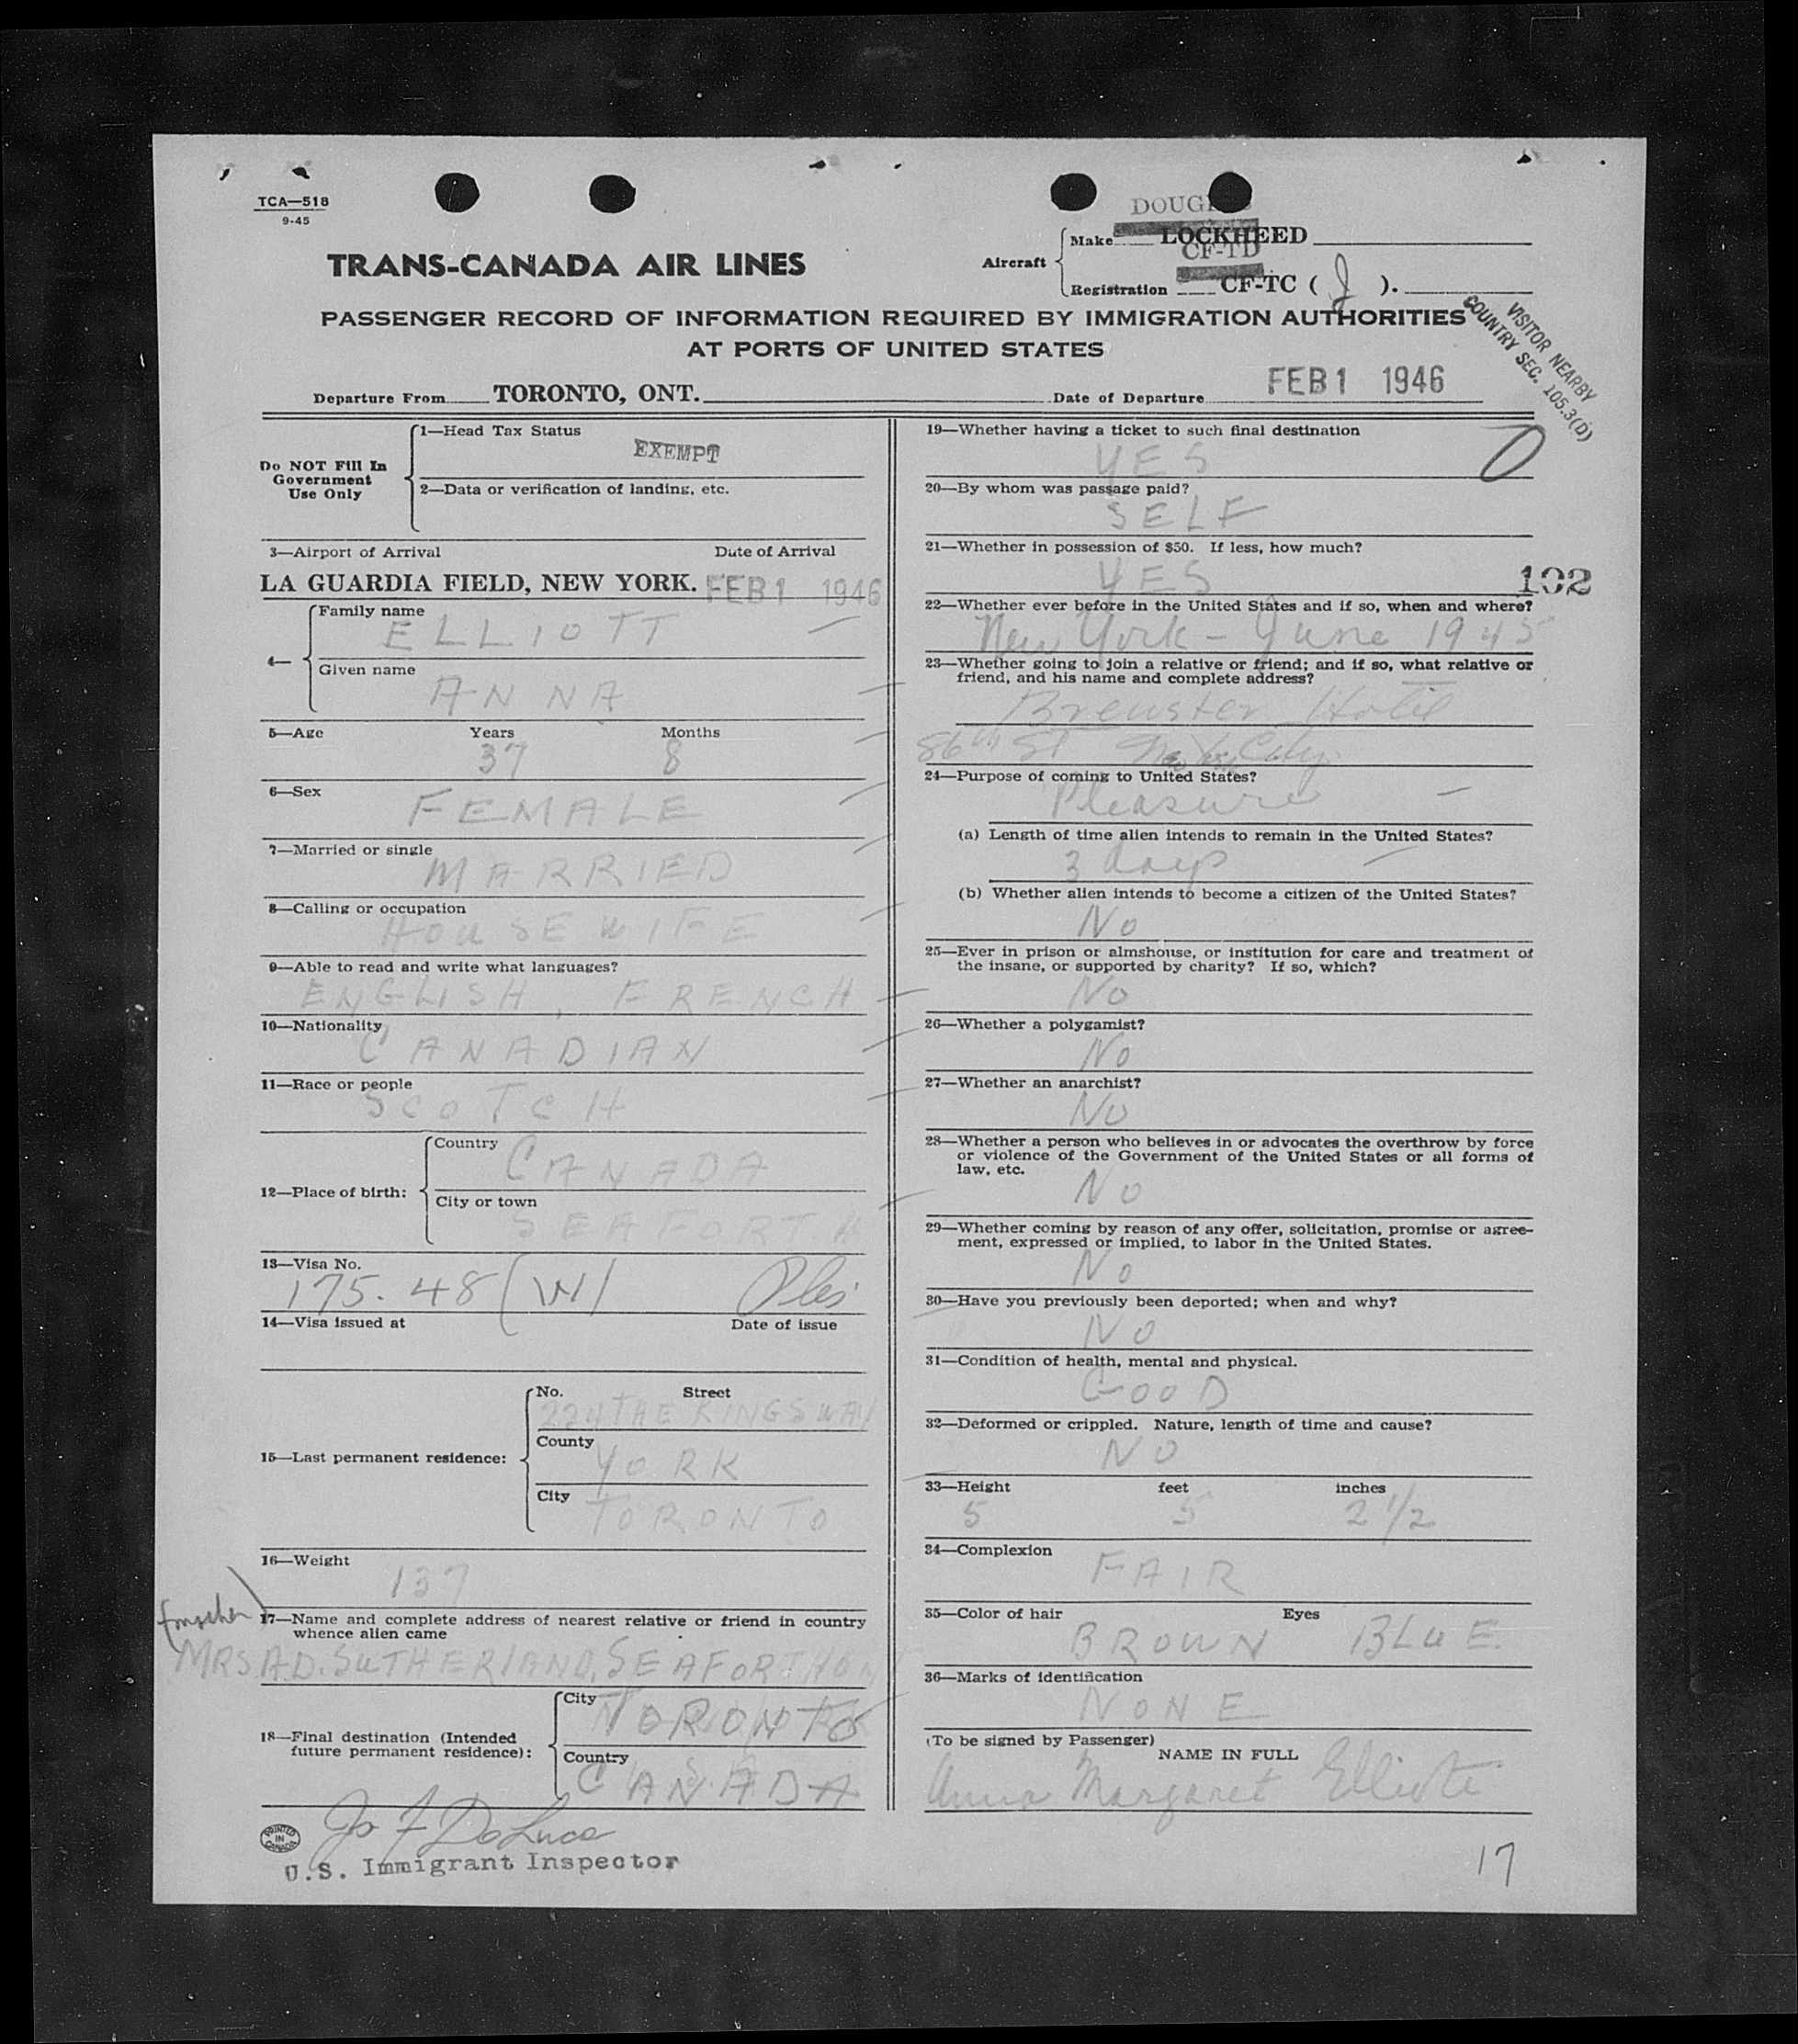 TCA—518
9-45
DOUGLAS
Aircraft
Make LOCKHEED
CF-TD
Registration CF-TC ( J ).
TRANS-CANADA AIR LINES
PASSENGER RECORD OF INFORMATION REQUIRED BY IMMIGRATION AUTHORITIES
AT PORTS OF UNITED STATES
VISITOR NEARBY
COUNTRY SEC. 105.3(D)
Departure From TORONTO, ONT. Date of Departure FEB 1 1946
Do NOT Fill In
Government
Use Only
1—Head Tax Status
EXEMPT
2—Data or verification of landing, etc.
3—Airport of Arrival Date of Arrival
LA GUARDIA FIELD, NEW YORK. FEB 1 1946
4—
Family name
ELLIOTT
Given name
ANNA
5—Age Years Months
37 8
6—Sex
FEMALE
7—Married or single
MARRIED
8—Calling or occupation
HOUSEWIFE
9—Able to read and write what languages?
ENGLISH, FRENCH
10—Nationality
CANADIAN
11—Race or people
SCOTCH
12—Place of birth:
Country
CANADA
City or town
SEAFORTH
13—Visa No.
175.48 (W)
14—Visa issued at Date of issue
15—Last permanent residence:
No. Street
224 THE KINGSWAY
County
YORK
City
TORONTO
16—Weight
137
17—Name and complete address of nearest relative or friend in country
whence alien came
MRS A.D. SUTHERLAND, SEAFORTH ON
18—Final destination (Intended
future permanent residence):
City
TORONTO
Country
CANADA
U.S. Immigrant Inspector
PRINTED
IN
CANADA
19—Whether having a ticket to such final destination
YES
0
20—By whom was passage paid?
SELF
21—Whether in possession of $50. If less, how much?
YES
102
22—Whether ever before in the United States and if so, when and where?
New York - June 1945
23—Whether going to join a relative or friend; and if so, what relative or
friend, and his name and complete address?
Brewster Hotel
86th St New York City
24—Purpose of coming to United States?
Pleasure
(a) Length of time alien intends to remain in the United States?
3 days
(b) Whether alien intends to become a citizen of the United States?
No
25—Ever in prison or almshouse, or institution for care and treatment of
the insane, or supported by charity? If so, which?
No
26—Whether a polygamist?
No
27—Whether an anarchist?
No
28—Whether a person who believes in or advocates the overthrow by force
or violence of the Government of the United States or all forms of
law, etc.
No
29—Whether coming by reason of any offer, solicitation, promise or agree-
ment, expressed or implied, to labor in the United States.
No
30—Have you previously been deported; when and why?
NO
31—Condition of health, mental and physical.
GOOD
32—Deformed or crippled. Nature, length of time and cause?
NO
33—Height feet inches
5 5 2 1/2
34—Complexion
FAIR
35—Color of hair Eyes
BROWN BLUE.
36—Marks of identification
NONE
(To be signed by Passenger)
NAME IN FULL
Anna Margaret Elliott
17